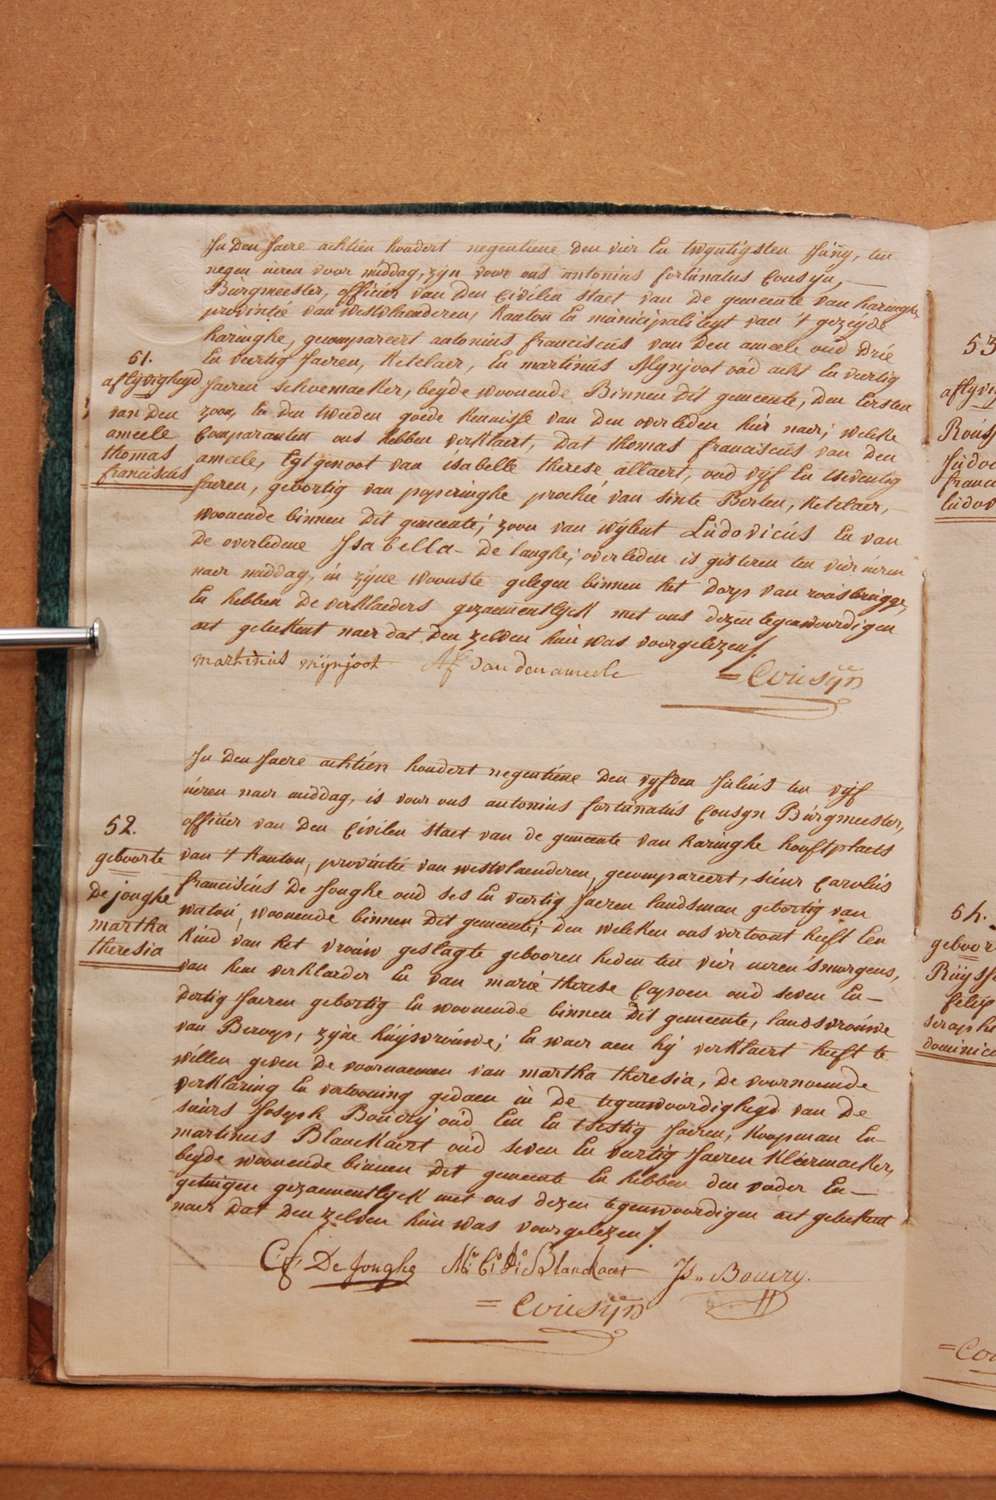 In den Jaere achtien hondert negentiene den vier En twyntigsten Juny, ten
negen ueren voor middag, zyn voor ons antonius fortunatus Cousyn,
Burgmeester, officier van den Civilen Staet van de gemeente van haringhe,
provintie van westvlaenderen, Kanton En municipaliteyt van 't gezeyde
haringhe, gecompareert antonius franciscus van den ameele oud drie
En vertig Jaeren, Ketelaer, En martinus Mynjoot oud acht En vertig
Jaeren schoemaeker, beyde woonende Binnen dit gemeente, den Eersten
zoon En den tweeden goede kennisse van den overleden hier naer; welcke
Comparanten ons hebben verklaert, dat thomas franciscus van den
ameele, Egtgenoot van isabelle therese allaert, oud vyf En tseventig
Jaeren, gebortig van poperinghe prochie van sinte Berten, Ketelaer,
woonende binnen dit gemeente; zoon van wylent Ludovicus En van
de overledene Isabella De langhe; overleden is gisteren ten vier ueren
naer middag, in zyne wooning gelegen binnen het dorp van roosbrugge,
En hebben de verklaeders gezaementlyck met ons dezen tegenwoordigen
act geteekent naer dat den zelven hun was voorgelezen/.
martinus mijnjoot Af van den ameele = Cousÿn
51.
aflyvigheyd
van den
ameele
thomas
franciscus
In den Jaere achtien hondert negentiene den vyfden Julius ten vyf
ueren naer middag, is voor ons antonius fortunatus Cousyn Burgmeester,
officier van den Civilen Staet van de gemeente van haringhe hooftplaets
van 't Kanton, provintie van westvlaenderen, gecompareert, sieur Carolus
franciscus De Jonghe oud ses En vertig Jaeren landsman gebortig van
watou, woonende binnen dit gemeente; den welcken ons vertoont heeft Een
Kind van het vrouw geslagte gebooren heden ten vier ueren 's morgens,
van hem verklaerder En van marie therese Capoen oud seven En
dertig Jaeren gebortig En woonende binnen dit gemeente, landsvrouwe
van Beroep, zyne huysvrouwe; En waer aen hy verklaert heeft te
willen geven de voornaemen van martha theresia, de voornoemde
verklaring En vertooning gedaen in de tegenwoordigheyd van de
sieurs Joseph Boucry oud Een En tsestig Jaeren, Koopman En
martinus Blanckaert oud seven En vertig Jaeren Kleermaeker,
beyde woonende binnen dit gemeente En hebben den vader En
getuigen gezaementlyck met ons dezen tegenwoordigen act geteekent
naer dat den zelven hun was voorgelezen/.
C:f: De Jonghe Blanckaert Js.. Boucry.
= Cousÿn
52.
geboorte
De jonghe
martha
theresia
53
aflyvi
Rouss
Judoc
franc
ludov
54.
geboor
Ruyss
felip
seraphi
dominic
= Co